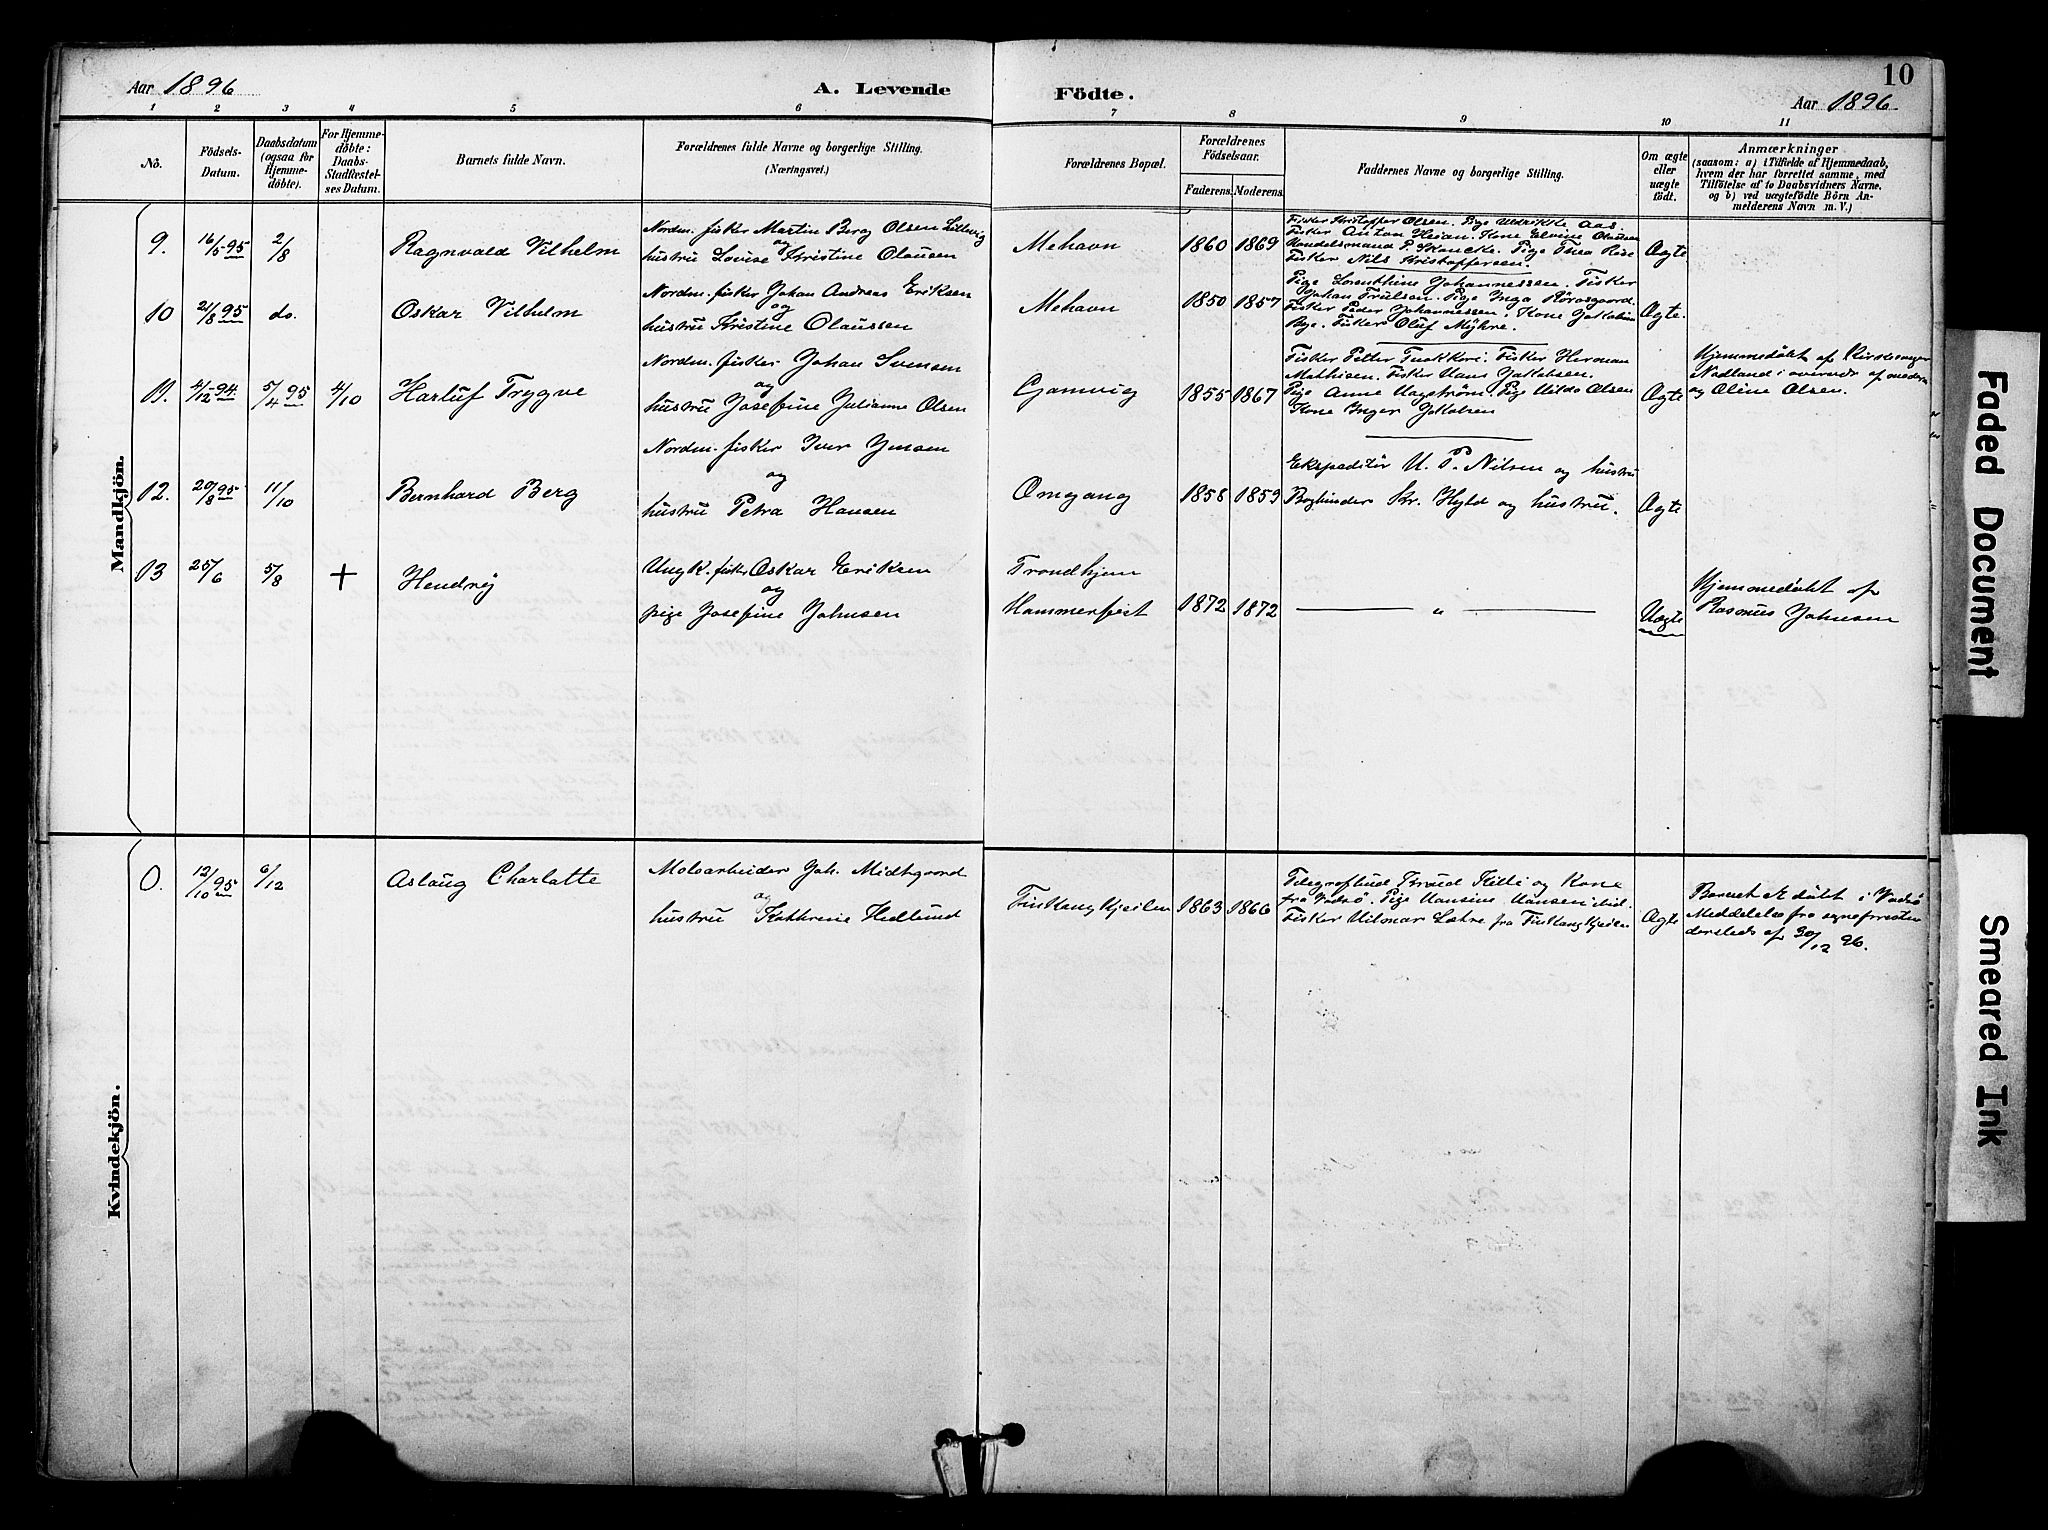 10
Aar 1896
A. Levende Födte.
Aar 1896
1 2 3 4 5 6 7 8 9 10 11
No.
Födsels-Datum.
Daabsdatum (ogsaa for Hjemme-döbte).
For Hjemme-döbte: Daabs-Stadfæstel-ses Datum.
Barnets fulde Navn.
Forældrenes fulde Navne og borgerlige Stilling.
(Næringsvei.)
Forældrenes Bopæl.
Forældrenes Födselsaar.
Faderens. Moderens.
Faddernes Navne og borgerlige Stilling.
Om ægte eller uægte födt.
Anmærkninger
(saasom: a) i Tilfælde af Hjemmedaab,
hvem der har forrettet samme, med
Tilföielse af to Daabsvidners Navne,
og b) ved uægtefödte Börn An-
melderens Navn m. V.)
Mandkjön.
9. 16/5 95 2/8 Ragnvald Vilhelm
Nordm. fisker Martin Berg Olsen
og
hustru Lovise Kristine Olausen
Mehavn 1860 1869
Fisker Kristoffer Olsen. Pige Aas.
Fisker Anton Heian. Kone Elvine Olausen
Handelsmand P. Skancke. Pige Thea
Fisker Nils Kristoffersen.
Ægte
10 21/8 95 do. Oskar Vilhelm
Nordm. fisker Johan Andreas Eriksen
og
hustru Kristine Olaussen
Mehavn 1850 1857
Pige Lorenthine Johannessen. Fisker
Johan Trulsen. Pige Inga
Fisker Peder Johannessen. Kone Jakobine
Bye. Fisker Oluf Myhre.
Ægte.
11. 4/12 94 5/4 95 4/10 Harluf Trygve
Nordm. fisker Johan Svensen
og
hustru Josefine Julianne Olsen
Gamvig 1855 1867
Fisker Petter. Fisker Herman
Mathisen. Fisker Hans Jakobsen.
Pige Anne Hagstrøm. Pige Hilda Olsen
Kone Inger Jakobsen
Ægte
Hjemmedøbt af Kirkesanger
Nodland i overværelse af moderen
og Oline Olsen.
12. 20/8 95 11/10 Bernhard Berg
Nordm. fisker Iver Jensen
og
hustru Petra Hansen
Omgang 1858 1859
Ekspeditør U. P. Nilsen og hustru
Bogbinder Kr. Hyld og hustru.
Ægte
13 25/6 5/8 + Hendrij
Ungk. fisker Oskar Eriksen
og
pige Josefine Johnsen
Trondhjem
Hammerfest 1872 1872
— „ —
Uægte
Hjemmedøbt af
Rasmus Johnsen
Kvindekjön.
0. 12/10 95 6/12 Aslaug Charlotte
Moloarbeider Joh. Midtgaard
og
hustru Kathrine Hedlund
Finkongkjeilen 1863 1866
Telegrafbud Killi og Kone
fra Vadsø. Pige Hansine Hansen ibid.
Fisker Hilmar Lahre fra Finkongkjeilen
Ægte
Barnet er døbt i Vadsø
Meddelelse fra sognepresten
dersteds af 30/12 96.
Faded Document
Smeared Ink